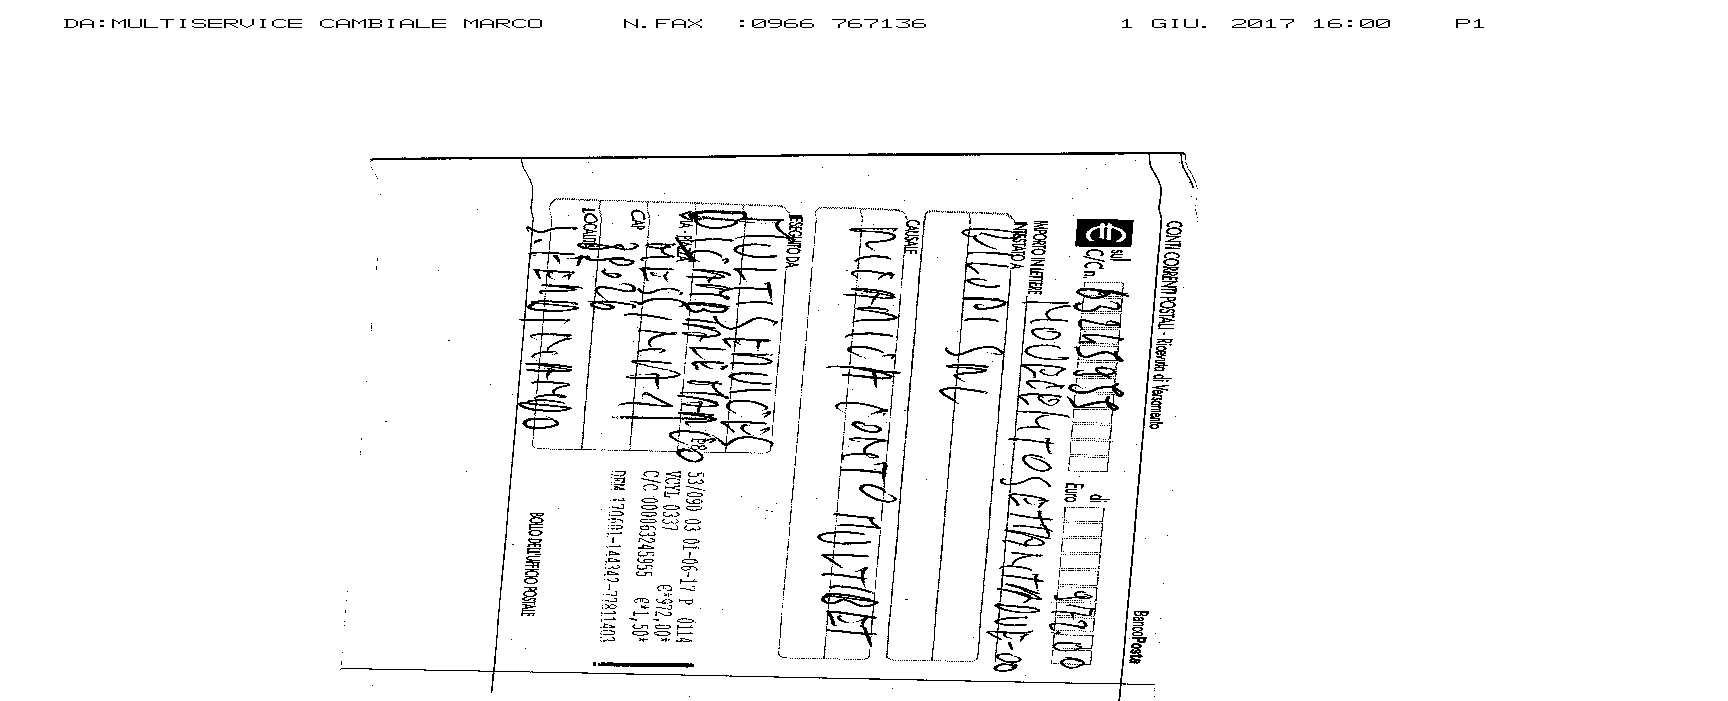 DA:MULTISERVICE CAMBIALE MARCO N.FAX :0966 767136 1 GIU. 2017 16:00 P1
CONTI CORRENTI POSTALI - Ricevuta di Versamento BancoPosta
sul C/C n. 63245955 di Euro 97200
IMPORTO IN LETTERE NOVECENTOSETTANTADUE-00
INTESTATO A
SRL
CAUSALE
RICARICA CONTO MULTIBET
ESEGUITO DA
MULTISERVICES
DI CAMBIALE MARCO
VIA - PIAZZA
CAP
LOCALITÀ
53/090 03 01-06-17 P 0114
VCYL 0337 €*972,00*
C/C 000063245955 €*1,50*
BOLLO DELL'UFFICIO POSTALE